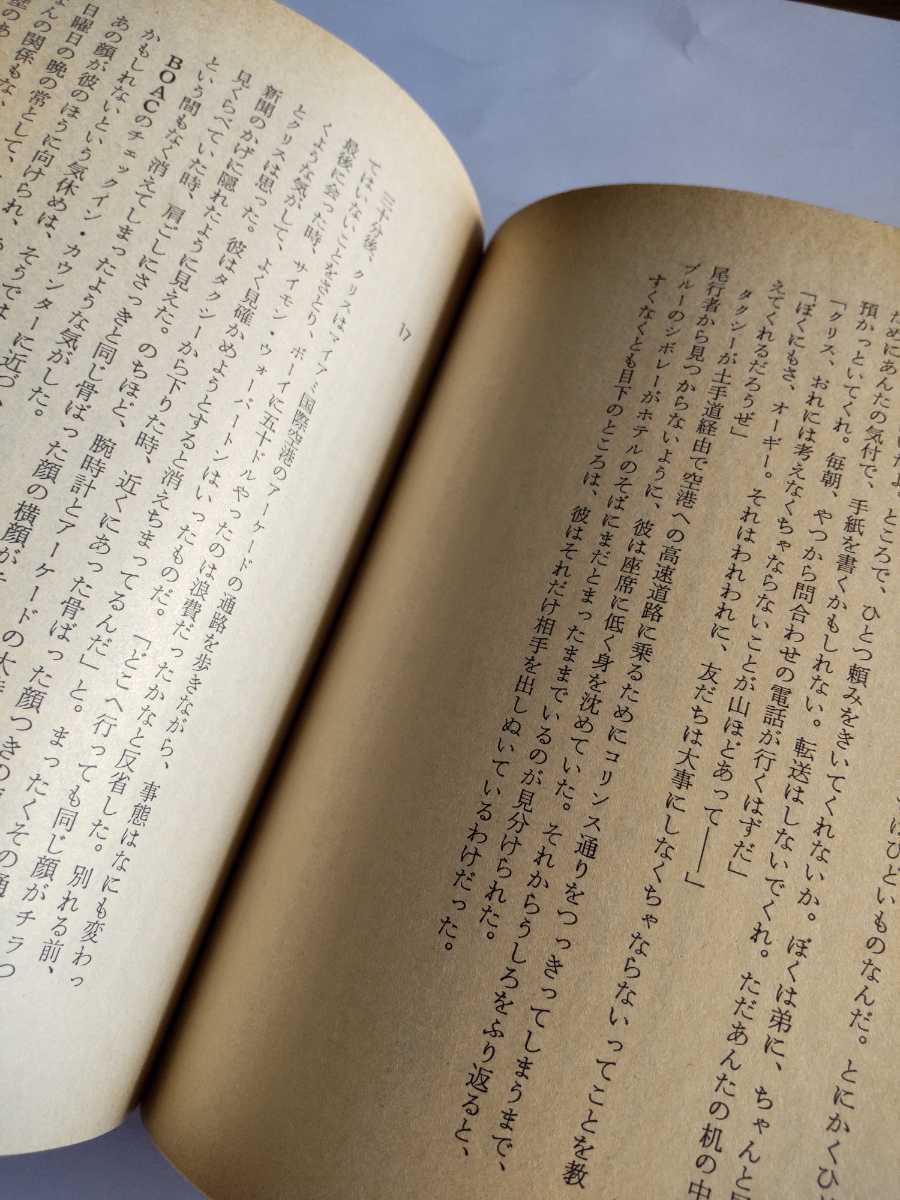 はひどいものなんだ。とにかくひ
いたよ。ところで、ひとつ頼みをきいてくれないか。ぼくは弟に、ちゃんと
ためにあんたの気付で、手紙を書くかもしれない。転送はしないでくれ。ただあんたの机の中
預かっといてくれ。毎朝、やつから問合わせの電話が行くはずだ」
「クリス、おれには考えなくちゃならないことが山ほどあって――」
「ぼくにもさ、オーギー。それはわれわれに、友だちは大事にしなくちゃならないってことを教
えてくれるだろうぜ」
タクシーが土手道経由で空港への高速道路に乗るためにコリンス通りをつっきってしまうまで、
尾行者から見つからないように、彼は座席に低く身を沈めていた。それからうしろをふり返ると、
ブルーのシボレーがホテルのそばにまだとまったままでいるのが見分けられた。
すくなくとも目下のところは、彼はそれだけ相手を出しぬいているわけだった。
17
三十分後、クリスはマイアミ国際空港のアーケードの通路を歩きながら、事態はなにも変わっ
てはいないことをさとり、ボーイに五十ドルやったのは浪費だったかなと反省した。別れる前、
最後に会った時、サイモン・ウォーバートンはいったものだ。「どこへ行っても同じ顔がチラつ
くような気がして、よく見確かめようとすると消えちまってるんだ」と。まったくその通
とクリスは思った。彼はタクシーから下りた時、近くにあった骨ばった顔つきの
新聞のかげに隠れたように見えた。のちほど、腕時計とアーケードの大
見くらべていた時、肩ごしにさっきと同じ骨ばった顔の横顔が
という間もなく消えてしまったような気がした。
BOACのチェックイン・カウンターに近づ
かもしれないという気休めは、そうでは
あの顔が彼のほうに向けられ、
日曜日の晩の常として、
んの関係もな